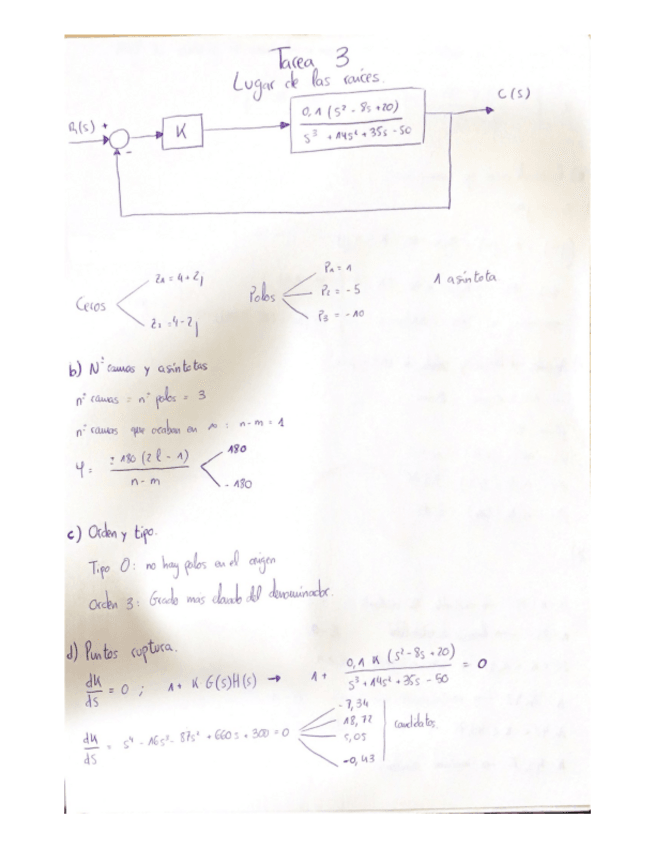 Tarea 3
Lugar de las raíces.
R(s) + -
K
0,1 (s² - 8s + 20)
s³ + 14s² + 35s - 50
C(s)
Ceros
z₁ = 4 + 2j
z₂ = 4 - 2j
Polos
P₁ = 1
P₂ = -5
P₃ = -10
1 asíntota
b) Nº ramas y asíntotas
nº ramas = nº polos = 3
nº ramas que acaban en ∞ : n-m = 1
φ = ± 180 (2l - 1) / n - m
180
- 180
c) Orden y tipo.
Tipo 0: no hay polos en el origen
Orden 3: Grado mas elevado del denominador.
d) Puntos ruptura.
dk/ds = 0 ; 1 + K G(s)H(s) → 1 + 0,1 K (s² - 8s + 20) / s³ + 14s² + 35s - 50 = 0
dk/ds = s⁴ - 16s³ - 87s² + 660s + 300 = 0
-7,34
18,72
5,05
-0,43
candidatos.